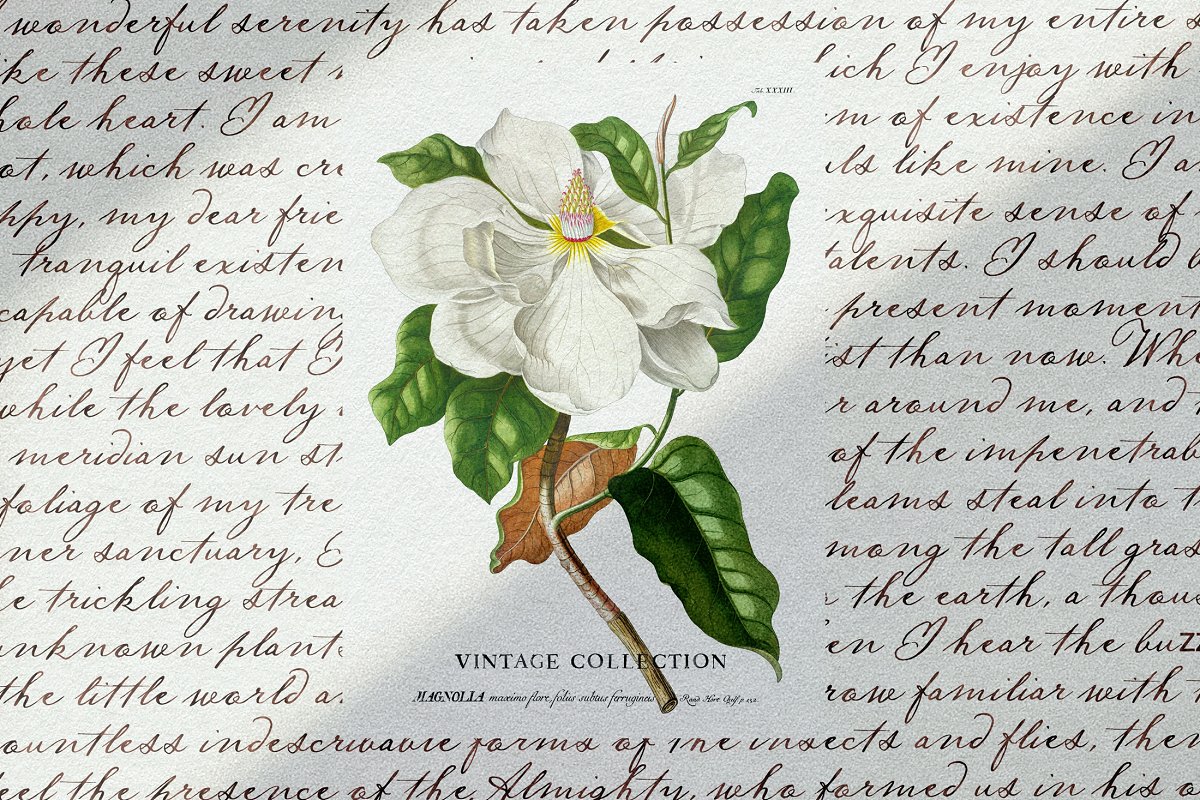 wonderful serenity has taken possession of my entire
ike these sweet
ich I enjoy with
Tab. XXXIII.
hole heart. I am
m of existence in
ot, which was cre
ls like mine. I a
ppy, my dear frie
xquisite sense of
tranquil existen
alents. I should
capable of drawing
present moment
yet I feel that I
st than now. Whe
while the lovely
r around me, and
meridian sun st
of the impenetrab
foliage of my tre
leams steal into t
ner sanctuary,
mong the tall gras
e trickling strea
the earth, a thous
unknown plant
en I hear the buzz
VINTAGE COLLECTION
the little world a
row familiar with
MAGNOLIA maximo flore, foliis subtus ferrugineis
ountless indescribable forms of the insects and flies, then
feel the presence of the Almighty, who formed us in his o